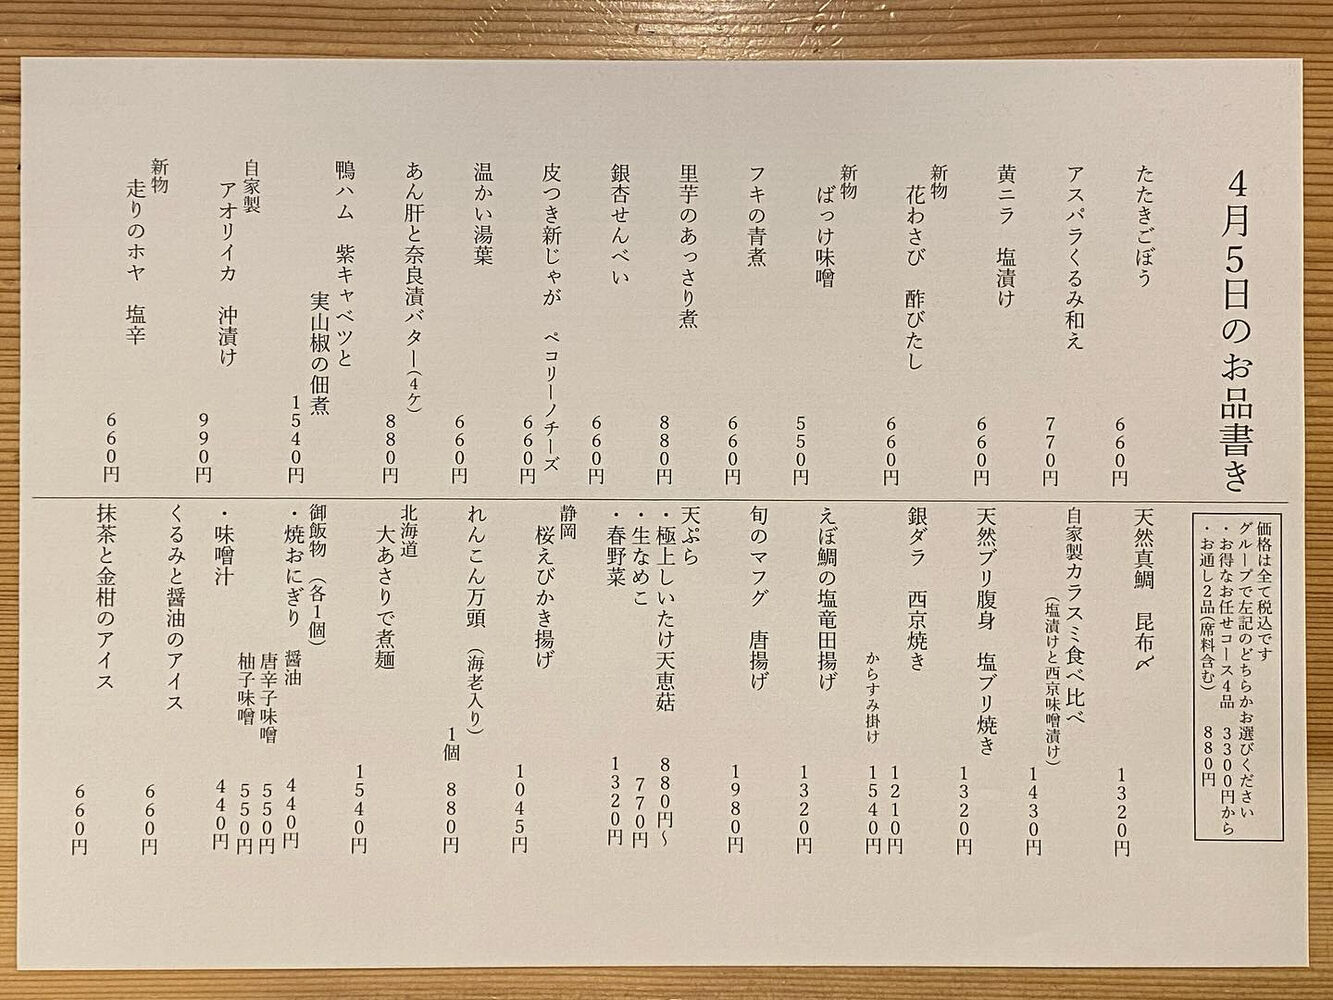 4月5日のお品書き
たたきごぼう
660円
アスパラくるみ和え
770円
黄ニラ 塩漬け
660円
新物
花わさび 酢びたし
660円
新物
ばっけ味噌
550円
フキの青煮
660円
里芋のあっさり煮
880円
銀杏せんべい
660円
皮つき新じゃが ペコリーノチーズ
660円
温かい湯葉
660円
あん肝と奈良漬バター(4ケ)
880円
鴨ハム 紫キャベツと
実山椒の佃煮
1540円
自家製
アオリイカ 沖漬け
990円
新物
走りのホヤ 塩辛
660円
価格は全て税込です
グループで左記のどちらかお選びください
・お得なお任せコース4品 3300円から
・お通し2品(席料含む) 880円
天然真鯛 昆布〆
1320円
自家製カラスミ食べ比べ
(塩漬けと西京味噌漬け)
1430円
天然ブリ腹身 塩ブリ焼き
1320円
銀ダラ 西京焼き
1210円
からすみ掛け 1540円
えぼ鯛の塩竜田揚げ
1320円
旬のマフグ 唐揚げ
1980円
天ぷら
・極上しいたけ天恵菇 880円～
・生なめこ 770円
・春野菜 1320円
静岡
桜えびかき揚げ
1045円
れんこん万頭 (海老入り)
1個 880円
北海道
大あさりで煮麺
1540円
御飯物 (各1個)
・焼おにぎり 醤油 440円
唐辛子味噌 550円
柚子味噌 550円
・味噌汁 440円
くるみと醤油のアイス
660円
抹茶と金柑のアイス
660円